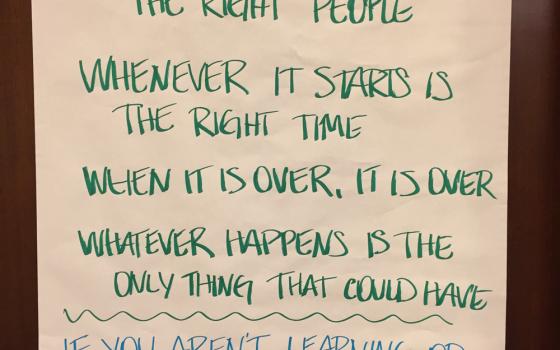 THE RIGHT PEOPLE
WHENEVER IT STARTS IS
THE RIGHT TIME
WHEN IT IS OVER, IT IS OVER
WHATEVER HAPPENS IS THE
ONLY THING THAT COULD HAVE
IF YOU AREN'T LEARNING OR